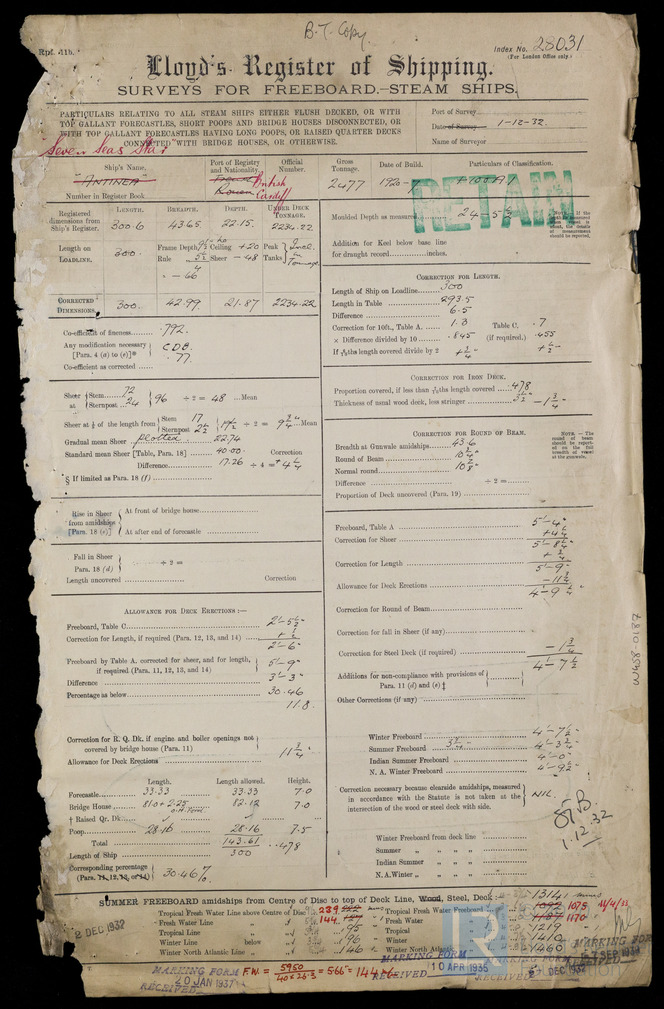 B.T. Copy
Rpt. 11b.
Index No. 28031
(For London Office only.)
Lloyd's Register of Shipping.
SURVEYS FOR FREEBOARD.—STEAM SHIPS.
PARTICULARS RELATING TO ALL STEAM SHIPS EITHER FLUSH DECKED, OR WITH
TOP GALLANT FORECASTLES, SHORT POOPS AND BRIDGE HOUSES DISCONNECTED, OR
WITH TOP GALLANT FORECASTLES HAVING LONG POOPS, OR RAISED QUARTER DECKS
CONNECTED WITH BRIDGE HOUSES, OR OTHERWISE.
Port of Survey
Date of Survey 1-12-32
Name of Surveyor
Seven Seas Star
Ship's Name.
Port of Registry and Nationality.
Official Number.
Gross Tonnage.
Date of Build.
Particulars of Classification.
"ANTINEA"
Rouen
British
Cardiff
2477
1920
+100A1
RETAIN
Number in Register Book
Registered dimensions from Ship's Register.
LENGTH. BREADTH. DEPTH. UNDER DECK TONNAGE.
300.6 43.65 22.15 2234.22
Length on LOADLINE.
300.
Frame Depth
Rule
Ceiling +.20
Sheer -.48
Peak Tanks
Incl. in Tonnage
-.66
CORRECTED DIMENSIONS.
300. 42.99 21.87 2234.22
Moulded Depth as measured 24-5½
Addition for Keel below base line
for draught record inches.
NOTE.—If the
Co-efficient of fineness .792
Any modification necessary [Para. 4 (a) to (e)]* CDB.
Co-efficient as corrected .77
CORRECTION FOR LENGTH.
Length of Ship on Loadline 300
Length in Table 293.5
Difference 6.5
Correction for 10ft., Table A. 1.3 Table C. .7
× Difference divided by 10 .845 (if required.) .455
If 6/10ths length covered divide by 2 +¾ +½
Sheer at Stem 72
Sternpost 24
96 ÷ 2 = 48 Mean
Sheer at ⅛ of the length from Stem 17
Sternpost 2½
19½ ÷ 2 = 9¾ Mean
Gradual mean Sheer plotted 22.74
Standard mean Sheer [Table, Para. 18] 40.00 Correction
Difference 17.26 ÷ 4 = +4¼
§ If limited as Para. 18 (f)
CORRECTION FOR IRON DECK.
Proportion covered, if less than 7/10ths length covered .478
Thickness of usual wood deck, less stringer 3½ -1¾
CORRECTION FOR ROUND OF BEAM.
Breadth at Gunwale amidships 43.6
Round of Beam 10¾
Normal round 10⅞
Difference ÷ 2 =
Proportion of Deck uncovered (Para. 19)
NOTE.—The round of beam should be reported on the full breadth of vessel at the gunwale.
Rise in Sheer from amidships [Para. 18 (e)]
At front of bridge house
At after end of forecastle
Fall in Sheer
Para. 18 (d)
÷ 2 =
Length uncovered Correction
Freeboard, Table A 5-4
Correction for Sheer +4¼
5-8¼
Correction for Length +¾
5-9
Allowance for Deck Erections -11¾
4-9¼
Correction for Round of Beam
Correction for fall in Sheer (if any)
Correction for Steel Deck (if required) -1¾
4-7½
Additions for non-compliance with provisions of Para. 11 (d) and (e) ‡
Other Corrections (if any)
ALLOWANCE FOR DECK ERECTIONS :—
Freeboard, Table C 2-5½
Correction for Length, if required (Para. 12, 13, and 14) +½
2-6
Freeboard by Table A. corrected for sheer, and for length, if required (Para. 11, 12, 13, and 14) 5-9
Difference 3-3
Percentage as below 30.46
11.8
Correction for R. Q. Dk. if engine and boiler openings not covered by bridge house (Para. 11)
Allowance for Deck Erections 11¾
Length. Length allowed. Height.
Forecastle 33.33 33.33 7.0
Bridge House 81.0 + 2.25 82.12 7.0
† Raised Qr. Dk.
Poop 28.16 28.16 7.5
Total 143.61
Length of Ship 300 = .478
Corresponding percentage (Para. 11, 12, 13, or 14) 30.46%
Winter Freeboard 4-7½
Summer Freeboard 4-3¾
Indian Summer Freeboard 4-0
N. A. Winter Freeboard 4-9½
Correction necessary because clearside amidships, measured in accordance with the Statute is not taken at the intersection of the wood or steel deck with side. NIL.
1.12.32
Winter Freeboard from deck line
Summer „ „ „ „
Indian Summer „ „ „ „
N.A. Winter „ „ „ „
SUMMER FREEBOARD amidships from Centre of Disc to top of Deck Line, Wood, Steel, Deck:— 1314½ mms
Tropical Fresh Water Line above Centre of Disc 239
Fresh Water Line „ 144
Tropical Line „ 95
Winter Line below „ 96
Winter North Atlantic Line „ 146
Tropical Fresh Water Freeboard 1075
Fresh Water „ 1170
Tropical „ 1219
Winter „ 1410
Winter North Atlantic „ 1460
2 DEC 1932
F.W. = 5950 / 40×26.3 = 566 = 144
MARKING FORM RECEIVED 20 JAN 1937
MARKING FORM RECEIVED 10 APR 1935
MARKING FORM RECEIVED DEC 1932
MARKING FORM RECEIVED SEP 193
W458-0187